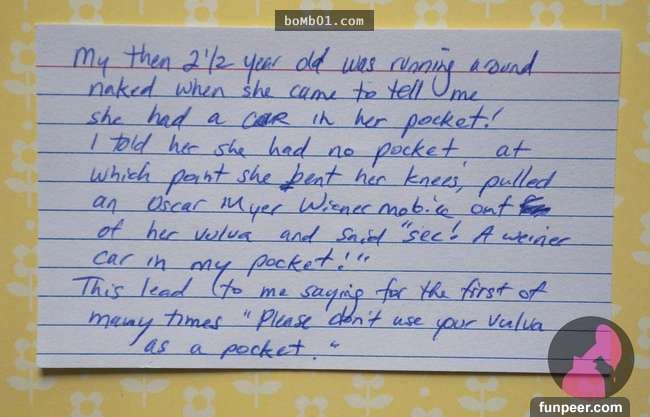 boMb01.com
My then 2 1/2 year old was running around
naked when she came to tell me
she had a CAR in her pocket!
I told her she had no pocket, at
which point she bent her knees, pulled
an Oscar Myer Wienermobile out
of her vulva and said "see! A weiner
car in my pocket!"
This lead to me saying for the first of
many times "Please don't use your vulva
as a pocket."
funpeer.com